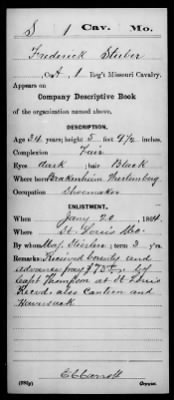 S | 1 | Cav. | Mo.
Frederick Stuber
Co. A, 1 Reg't Missouri Cavalry.
Appears on
Company Descriptive Book
of the organization named above.
DESCRIPTION.
Age 34 years; height 5 feet 4½ inches.
Complexion Fair
Eyes dark ; hair Black
Where born Brackenheim Wertemburg
Occupation Shoemaker
ENLISTMENT.
When Jany 20 , 1864.
Where St. Louis Mo.
By whom Maj. ; term 3 y'rs.
Remarks: Received bounty and
advance pay $73 by
Capt Thompson at St Louis
Recvd. also Canteen and
Haversack
Copyist.